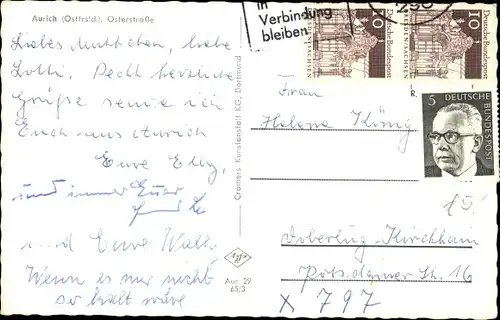 Aurich (Ostfrsld.). Osterstraße
Liebes Muttchen, liebe
Lotti. Recht herzliche
Grüße sende ich
Euch aus Aurich
Eure Elly,
und immer Euer
und Eure Walli
Wenn es nur nicht
so kalt wäre
Cramers Kunstanstalt KG, Dortmund
Aur. 29
65/3
in
Verbindung
bleiben
296
10
Deutsche Bundespost
10
Deutsche Bundespost
5 DEUTSCHE
BUNDESPOST
Frau
Helene König
Doberlug-Kirchhain
Potsdamer Str. 16
X 797